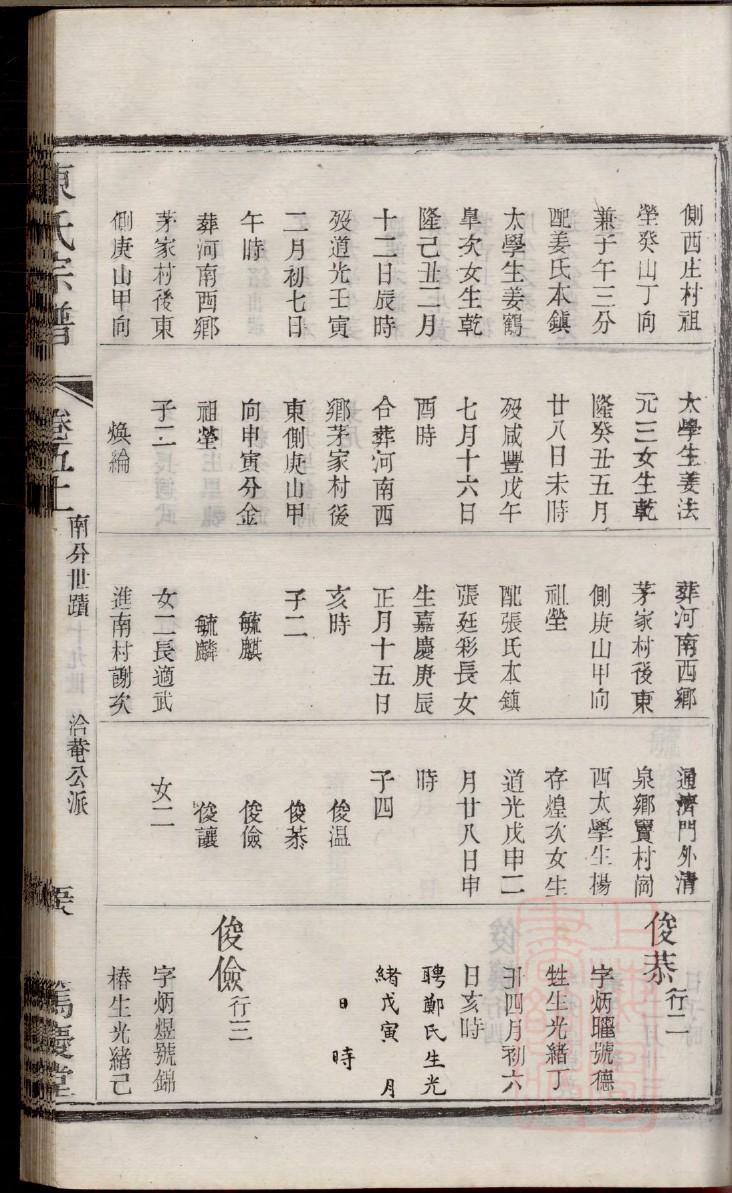 側西庄村祖
塋癸山丁向
兼子午三分
配姜氏本鎮
太學生姜鶴
臯次女生乾
隆己丑二月
十二日辰時
歿道光壬寅
二月初七日
午時
葬河南西鄉
茅家村後東
側庚山甲向
太學生姜法
元三女生乾
隆癸丑五月
廿八日未時
歿咸豐戊午
七月十六日
酉時
合葬河南西
鄉茅家村後
東側庚山甲
向申寅分金
祖塋
子二
煥綸
葬河南西鄉
茅家村後東
側庚山甲向
祖塋
配張氏本鎮
張廷彩長女
生嘉慶庚辰
正月十五日
亥時
子二
毓麒
毓麟
女二長適武
進南村謝次
通濟門外清
泉鄉賈村崗
西太學生揚
存煌次女生
道光戊申二
月廿八日申
時
子四
俊温
俊恭
俊儉
俊讓
女二
俊恭行二
字炳曬號德
甡生光緒丁
丑四月初六
日亥時
聘鄭氏生光
緒戊寅 月
日 時
俊儉行三
字炳煜號錦
椿生光緒己
陳氏宗譜
卷五上
南分世蹟
洽菴公派
篤慶堂